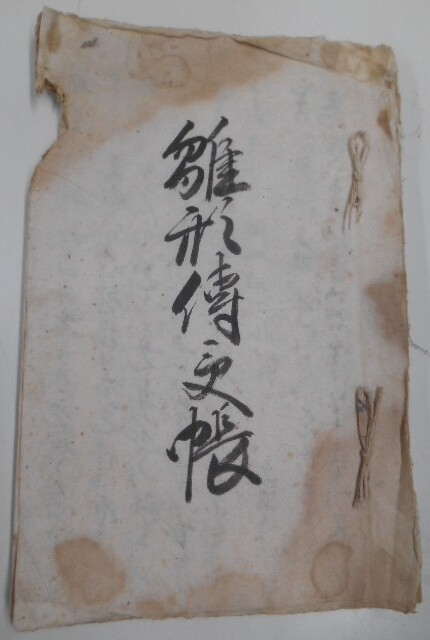 雛形傳文帳